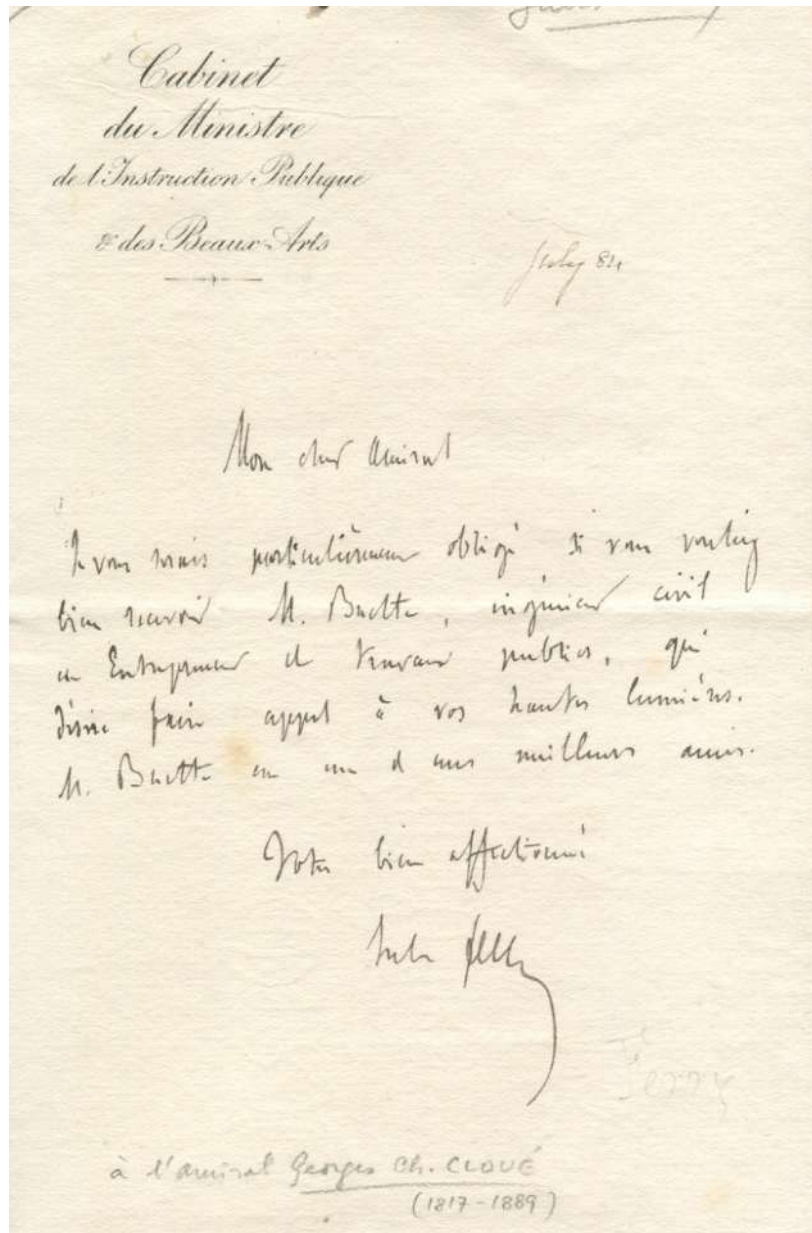 Cabinet
du Ministre
de l'Instruction Publique
& des Beaux-Arts
July 81
Mon cher Amiral
Je vous serais particulièrement obligé si vous vouliez
bien recevoir M. Buette, ingénieur civil
et Entrepreneur de travaux publics, qui
désire faire appel à vos hautes lumières.
M. Buette est un de mes meilleurs amis.
Votre bien affectionné
Jules Ferry
Ferry
à l'amiral Georges Ch. CLOUÉ
(1817-1889)